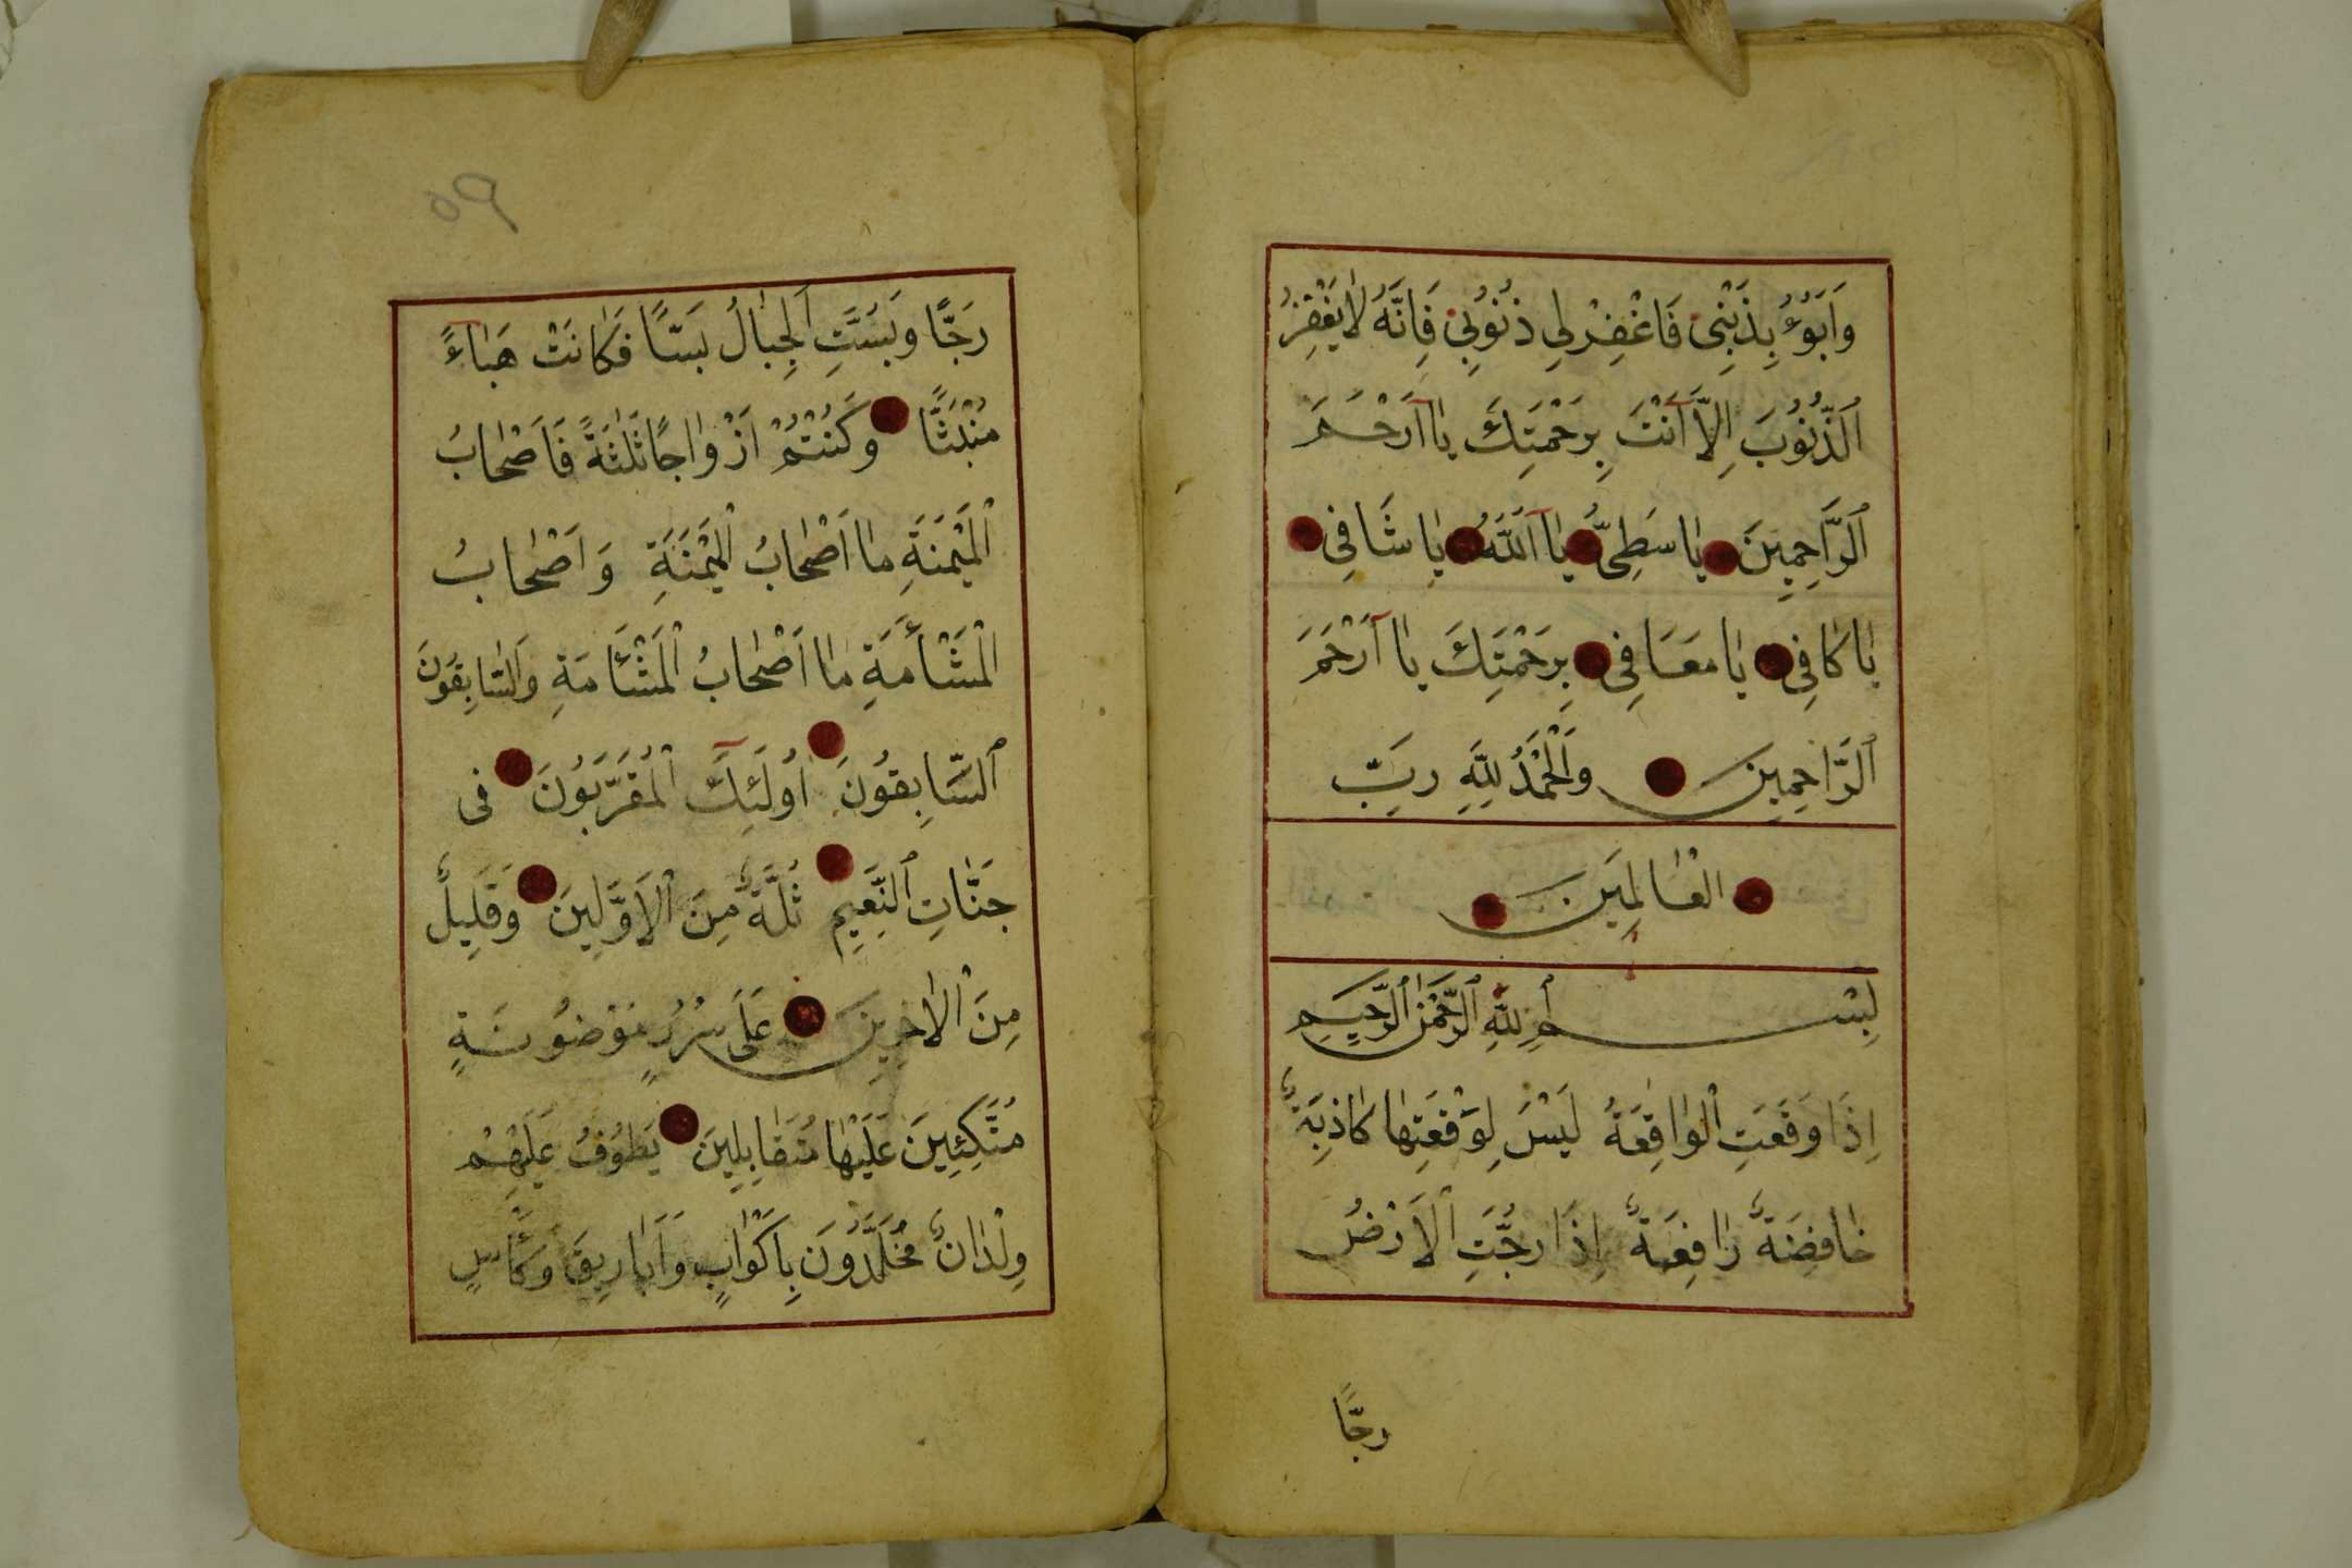 وَاَبُوءُ بِذَنْبِى فَاغْفِرْلِي ذُنُوبِي فَاِنَّهُ لَايَغْفِرُ
اَلذُّنُوبَ اِلَّا اَنْتَ بِرَحْمَتِكَ يَا اَرْحَمَ
اَلرَّاحِمِينَ يَا سَطِحِىُّ يَا اَللّٰهُ يَا شَافِى
يَا كَافِى يَا مُعَافِى بِرَحْمَتِكَ يَا اَرْحَمَ
اَلرَّاحِمِينَ وَالْحَمْدُ لِلّٰهِ رَبِّ
الْعَالَمِينَ
بِسْمِ اللّٰهِ الرَّحْمٰنِ الرَّحِيمِ
اِذَا وَقَعَتِ الْوَاقِعَةُ لَيْسَ لِوَقْعَتِهَا كَاذِبَةٌ
خَافِضَةٌ رَافِعَةٌ اِذَا رُجَّتِ الْاَرْضُ
رجًّا
٥٩
رَجًّا وَبُسَّتِ الْجِبَالُ بَسًّا فَكَانَتْ هَبَاءً
مُنْبَثًّا وَكُنْتُمْ اَزْوَاجًا ثَلٰثَةً فَاَصْحَابُ
الْمَيْمَنَةِ مَا اَصْحَابُ الْمَيْمَنَةِ وَاَصْحَابُ
الْمَشْأَمَةِ مَا اَصْحَابُ الْمَشْأَمَةِ وَالسَّابِقُونَ
اَلسَّابِقُونَ اُولٰئِكَ الْمُقَرَّبُونَ فى
جَنَّاتِ النَّعِيمِ ثُلَّةٌ مِنَ الْاَوَّلِينَ وَقَلِيلٌ
مِنَ الْاٰخِرِينَ عَلَى سُرُرٍ مَوْضُونَةٍ
مُتَّكِئِينَ عَلَيْهَا مُتَقَابِلِينَ يَطُوفُ عَلَيْهِمْ
وِلْدَانٌ مُخَلَّدُونَ بِاَكْوَابٍ وَاَبَارِيقَ وَكَأْسٍ